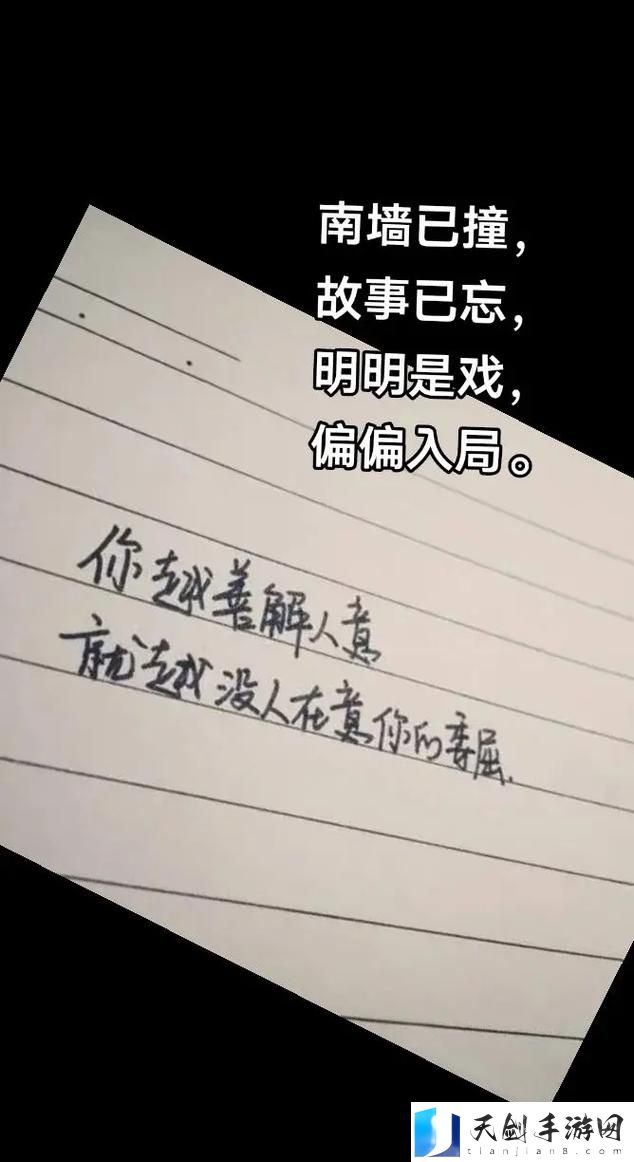 南墙已撞，
故事已忘，
明明是戏，
偏偏入局。
你越善解人意
就越没人在意你的委屈.
天剑手游网
tianjian8.com